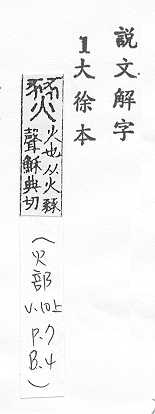 說文解字
1大徐本
燹
火也从火豩
聲穌典切
(火部
V.10上
P.7
B.4)